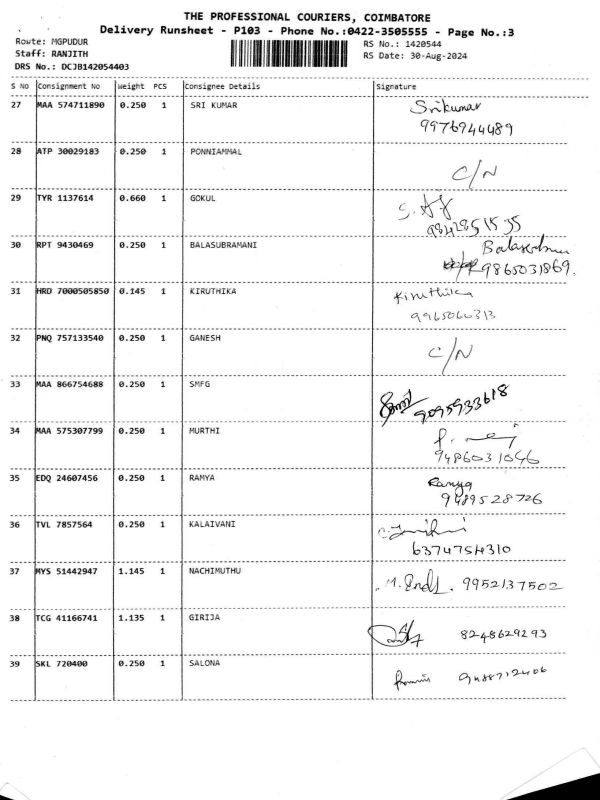 THE PROFESSIONAL COURIERS, COIMBATORE
Delivery Runsheet - P103 - Phone No.:0422-3505555 - Page No.:3
Route: MGPUDUR
Staff: RANJITH
DRS No.: DCJB142054403
RS No.: 1420544
RS Date: 30-Aug-2024
S No Consignment No Weight PCS Consignee Details Signature
27 MAA 574711890 0.250 1 SRI KUMAR Srikumar
9976944489
28 ATP 30029183 0.250 1 PONNIAMMAL
C/N
29 TYR 1137614 0.660 1 GOKUL
9842851535
30 RPT 9430469 0.250 1 BALASUBRAMANI
9865031869.
31 HRD 7000505850 0.145 1 KIRUTHIKA Kiruthika
9965060313
32 PNQ 757133540 0.250 1 GANESH
C/N
33 MAA 866754688 0.250 1 SMFG
9095933618
34 MAA 575307799 0.250 1 MURTHI
9486031046
35 EDQ 24607456 0.250 1 RAMYA Ramya
9489528726
36 TVL 7857564 0.250 1 KALAIVANI
6374754310
37 MYS 51442947 1.145 1 NACHIMUTHU
9952137502
38 TCG 41166741 1.135 1 GIRIJA
8248629293
39 SKL 720400 0.250 1 SALONA
9488712406